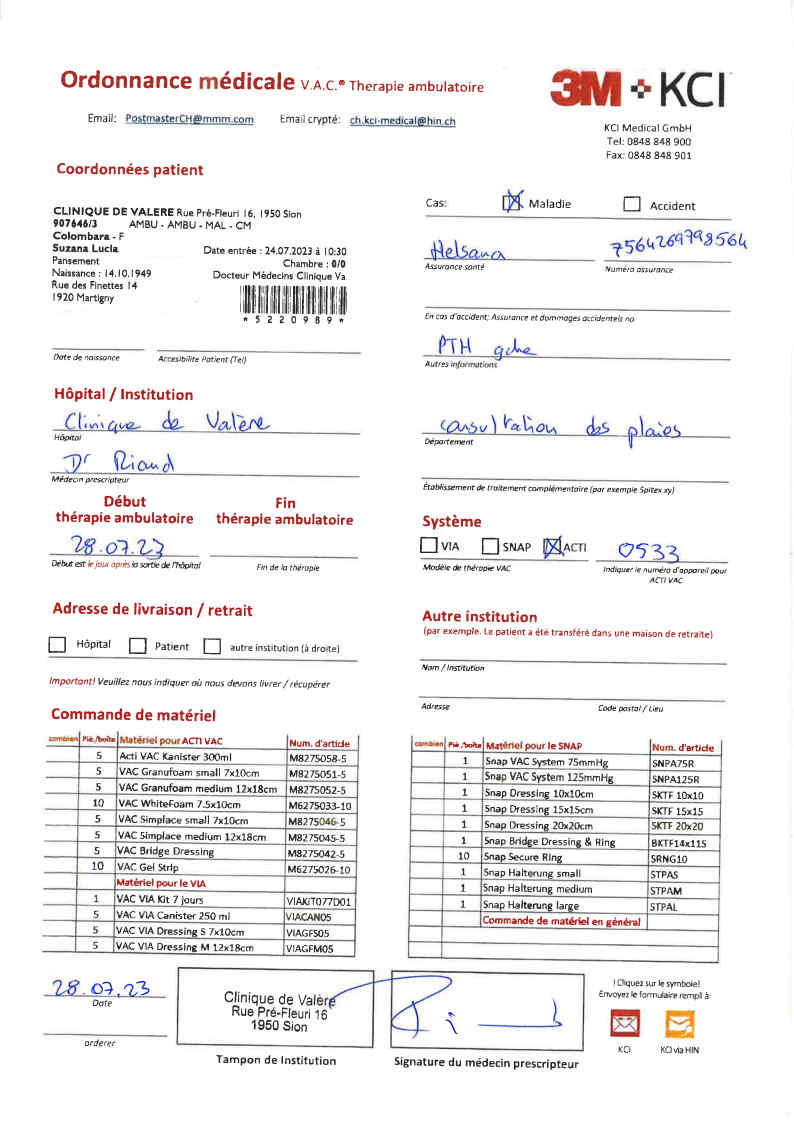 Ordonnance médicale V.A.C.® Therapie ambulatoire
3M + KCI
Email: PostmasterCH@mmm.com Email crypté: ch.kci-medical@hin.ch
KCI Medical GmbH
Tel: 0848 848 900
Fax: 0848 848 901
Coordonnées patient
CLINIQUE DE VALERE Rue Pré-Fleuri 16, 1950 Sion
907646/3 AMBU - AMBU - MAL - CM
Colombara - F
Suzana Lucia Date entrée : 24.07.2023 à 10:30
Pansement Chambre : 0/0
Naissance : 14.10.1949 Docteur Médecins Clinique Va
Rue des Finettes 14
1920 Martigny
* 5 2 2 0 9 8 9 *
Date de naissance Accesibilite Patient (Tel)
Cas: Maladie Accident
Helsana 7564269798564
Assurance santé Numéro assurance
En cas d'accident; Assurance et dommages accidentels no
PTH gche
Autres informations
Hôpital / Institution
Clinique de Valère
Hôpital
Dr Riand
Médecin prescripteur
consultation des plaies
Département
Établissement de traitement complémentaire (par exemple Spitex xy)
Début thérapie ambulatoire
Fin thérapie ambulatoire
28.07.23
Début est le jour après la sortie de l'hôpital Fin de la thérapie
Système
VIA SNAP ACTI 0533
Modèle de thérapie VAC Indiquer le numéro d'appareil pour ACTI VAC
Adresse de livraison / retrait
Hôpital Patient autre institution (à droite)
Important! Veuillez nous indiquer où nous devons livrer / récupérer
Autre institution
(par exemple. Le patient a été transféré dans une maison de retraite)
Nom / Institution
Adresse Code postal / Lieu
Commande de matériel
combien Piè./boîte Matériel pour ACTI VAC Num. d'article
5 Acti VAC Kanister 300ml M8275058-5
5 VAC Granufoam small 7x10cm M8275051-5
5 VAC Granufoam medium 12x18cm M8275052-5
10 VAC WhiteFoam 7.5x10cm M6275033-10
5 VAC Simplace small 7x10cm M8275046-5
5 VAC Simplace medium 12x18cm M8275045-5
5 VAC Bridge Dressing M8275042-5
10 VAC Gel Strip M6275026-10
Matériel pour le VIA
1 VAC VIA Kit 7 jours VIAKIT077D01
5 VAC VIA Canister 250 ml VIACAN05
5 VAC VIA Dressing S 7x10cm VIAGFS05
5 VAC VIA Dressing M 12x18cm VIAGFM05
combien Piè./boîte Matériel pour le SNAP Num. d'article
1 Snap VAC System 75mmHg SNPA75R
1 Snap VAC System 125mmHg SNPA125R
1 Snap Dressing 10x10cm SKTF 10x10
1 Snap Dressing 15x15cm SKTF 15x15
1 Snap Dressing 20x20cm SKTF 20x20
1 Snap Bridge Dressing & Ring BKTF14x11S
10 Snap Secure Ring SRNG10
1 Snap Halterung small STPAS
1 Snap Halterung medium STPAM
1 Snap Halterung large STPAL
Commande de matériel en général
28.07.23
Date
orderer
Clinique de Valère
Rue Pré-Fleuri 16
1950 Sion
Tampon de Institution
Signature du médecin prescripteur
! Cliquez sur le symbole!
Envoyez le formulaire rempli à:
KCI KCI via HIN